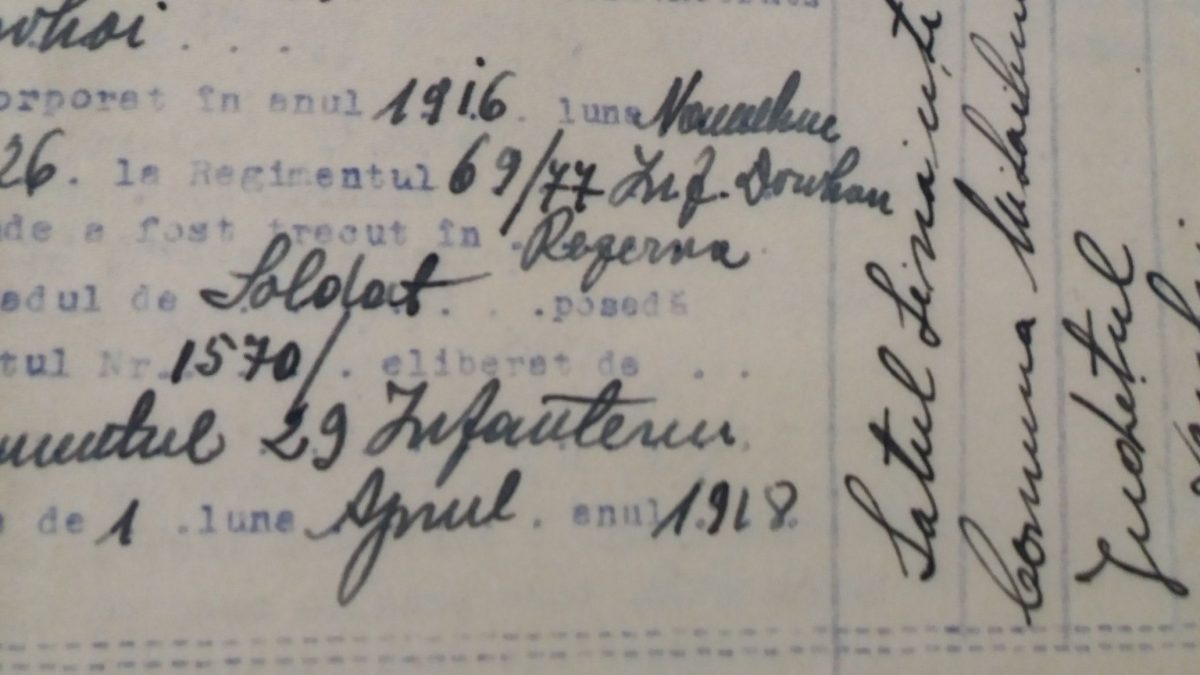 orhoi . . .
orporat în anul 1916. luna Noembrie
26. la Regimentul 69/77 Inf. Dorohoi
de a fost trecut în Rezerva
adul de Soldat . . . posedă
tul Nr. 1570/. eliberat de . .
mentul 29 Infanterie
de 1 .luna Aprilie. anul 1918.
Satul
Comuna
Judetul